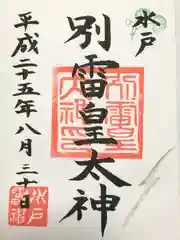 水戸
別雷皇太神
平成二十五年八月三十日
別雷皇
太神
水戸
雷神